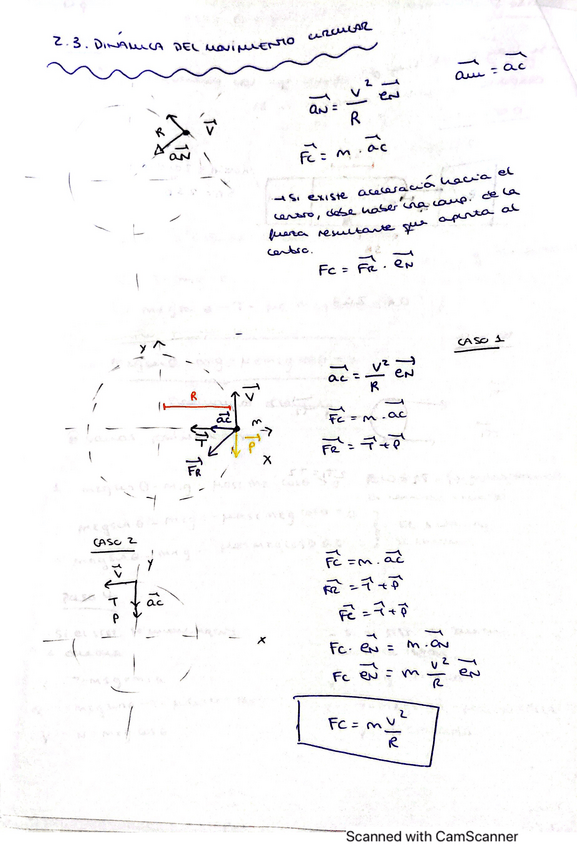 2.3. DINÁMICA DEL MOVIMIENTO CIRCULAR
aN = V²/R eN
Fc = m · ac
R V
aN
→ Si existe aceleración hacia el
centro, debe haber una comp. de la
fuerza resultante que apunta al
centro.
Fc = FR · eN
CASO 1
y
R
V
ac
m
T
P
FR
x
ac = V²/R eN
Fc = m · ac
FR = T + P
CASO 2
y
V
T
ac
P
x
Fc = m · ac
FR = T + P
Fc = T + P
Fc · eN = m · aN
Fc eN = m V²/R eN
Fc = m V²/R
Scanned with CamScanner